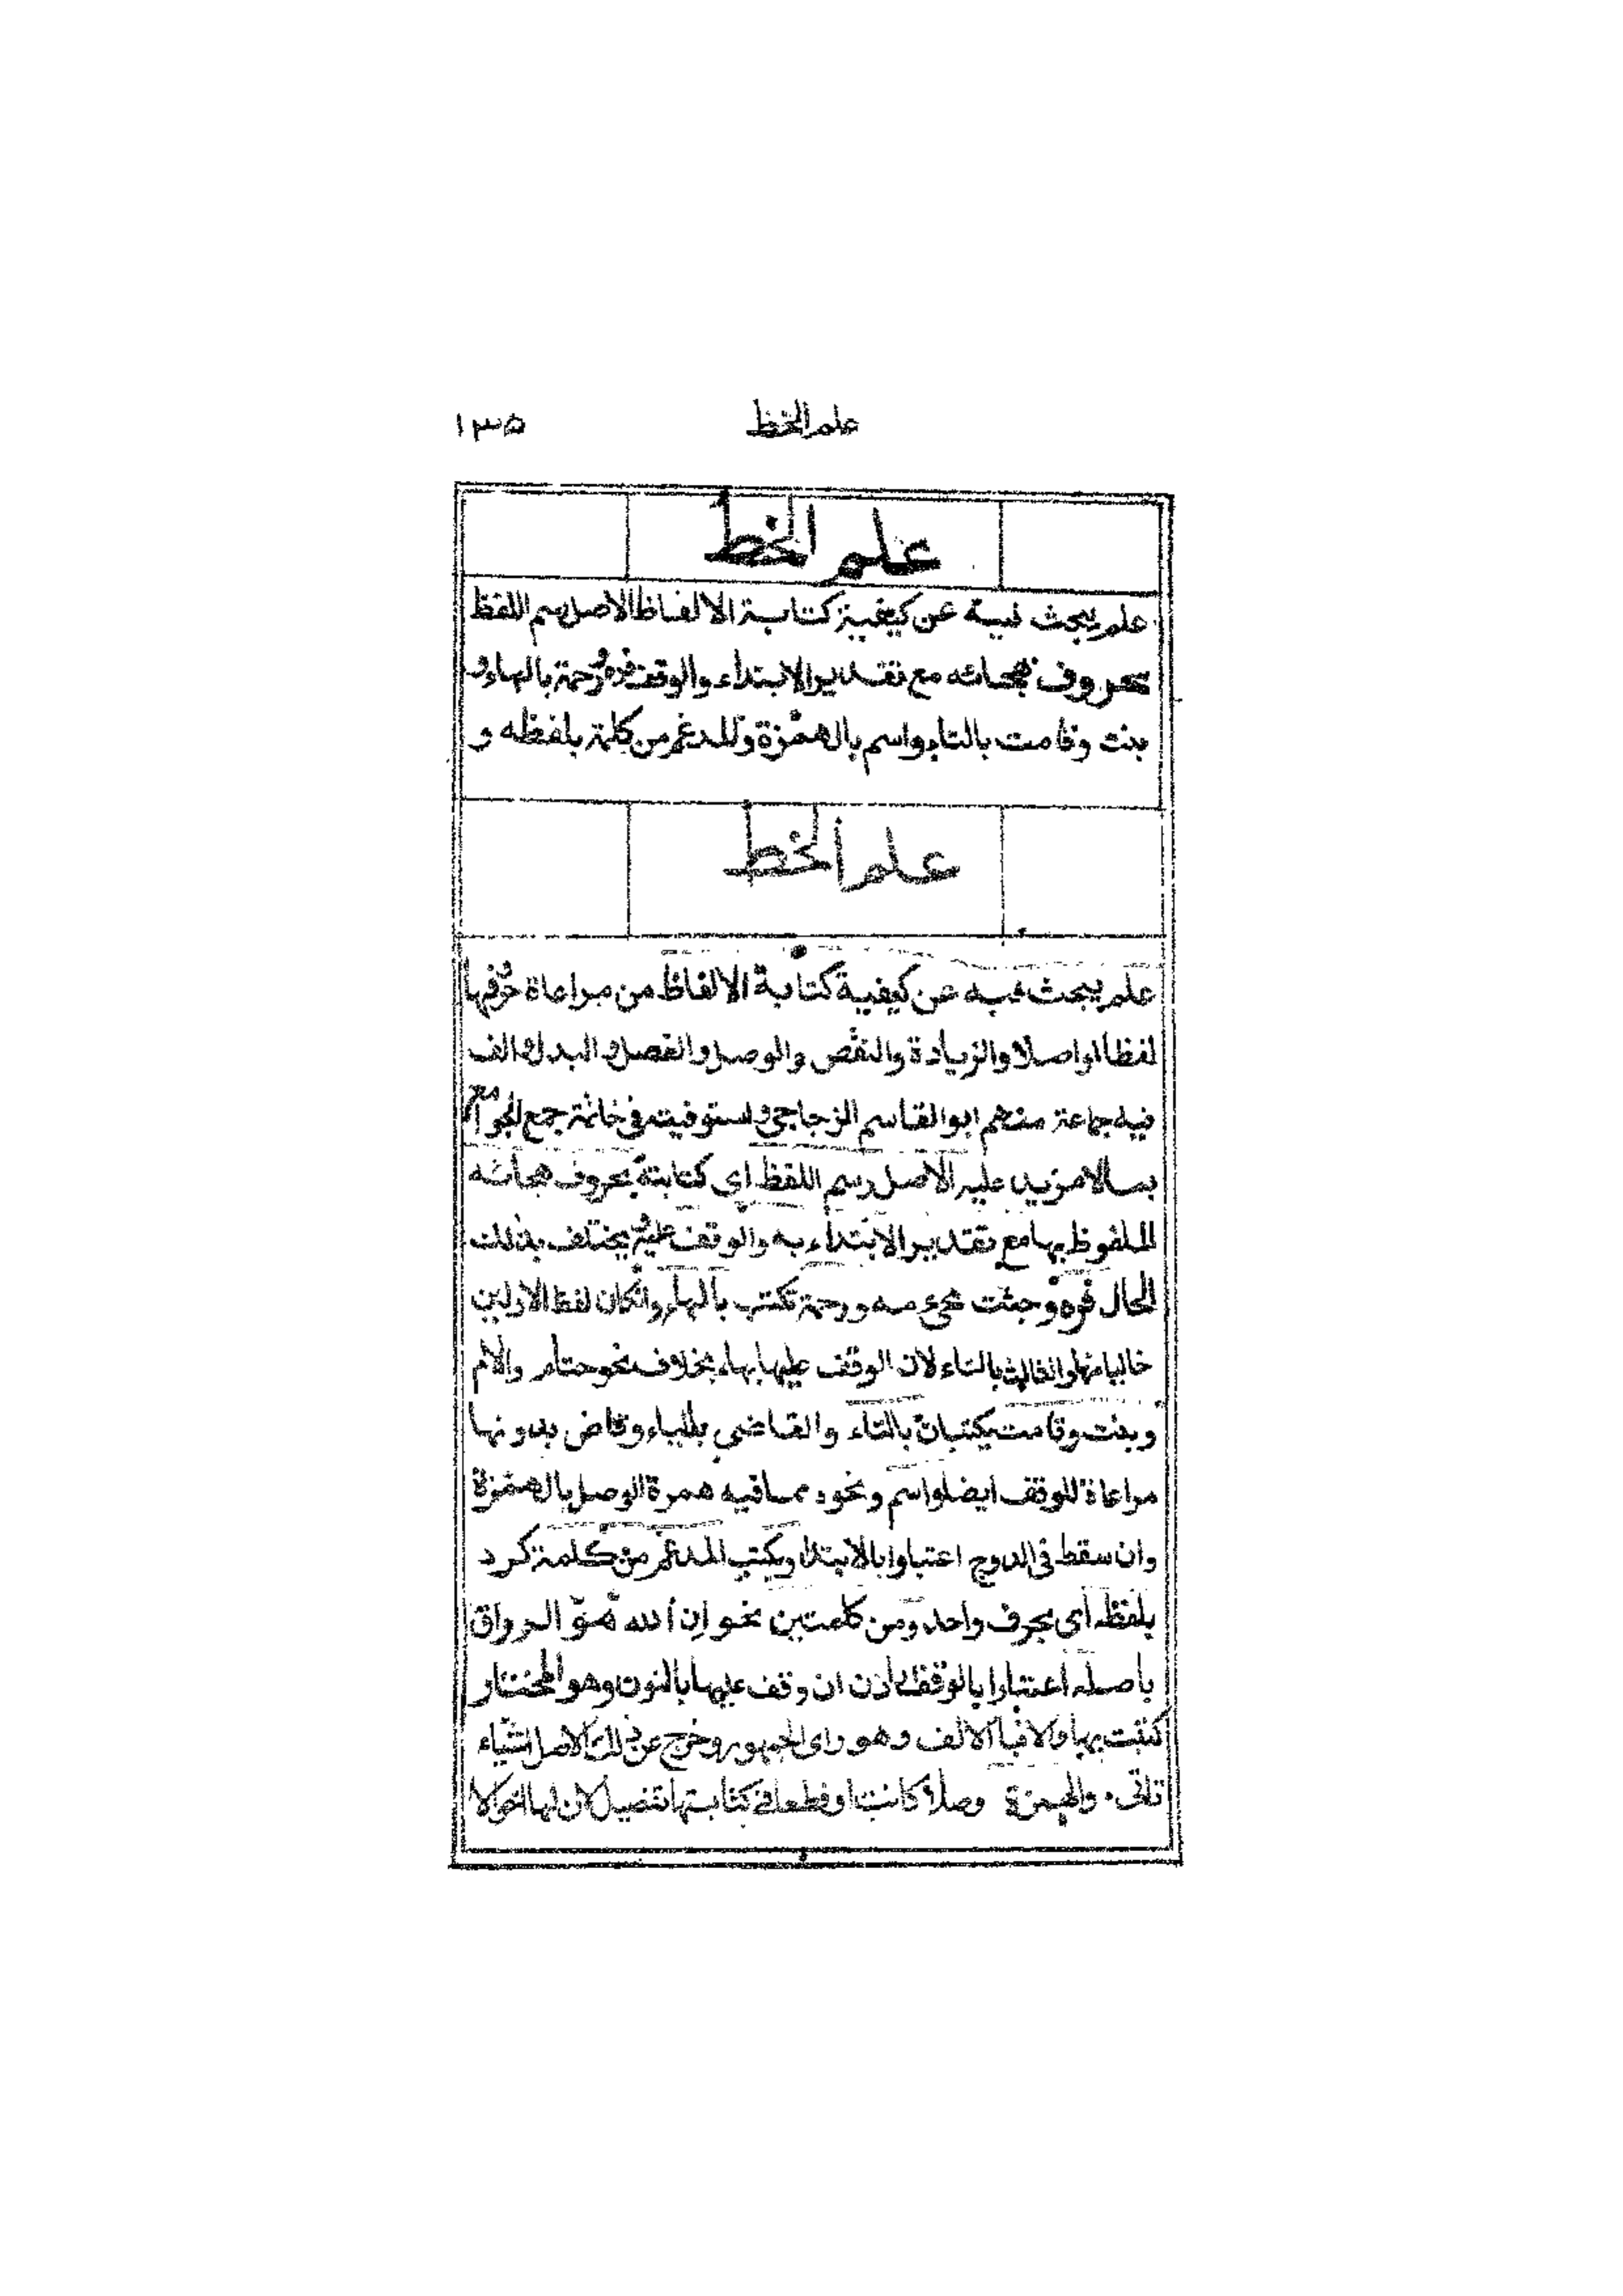 علم الخط
١٣٥
علم الخط
علم يبحث فيه عن كيفية كتابة الالفاظ الاصل رسم اللفظ
بحروف هجائه مع تقدير الابتداء والوقف فره ورحمة بالهاء و
بنت وقامت بالتاء واسم بالهمزة والمدغم من كلمة بلفظه و
علم الخط
علم يبحث فيه عن كيفية كتابة الالفاظ من مراعاة حروفها
لفظا او اصلا والزيادة والنقص والوصل والفصل والبدل والف
فيه جماعة منهم ابو القاسم الزجاجي واستوفيته في خاتمة جمع الجوامع
بما لا مزيد عليه الاصل رسم اللفظ اى كتابته بحروف هجائه
الملفوظ بها مع تقدير الابتداء به والوقف عليه يختلف بذلك
الحال فره وجئت مجىء مه ورحمة تكتب بالهاء وان كان لفظ الاولين
خاليا منها والثالث بالتاء لان الوقف عليها بهاء بخلاف نحو حتام والام
وبنت وقامت يكتبان بالتاء والقاضي بالياء وقاض بدونها
مراعاة للوقف ايضا واسم ونحوه مما فيه همزة الوصل بالهمزة
وان سقط فى الدرج اعتبارا بالابتداء ويكتب المدغم من كلمة كرد
بلفظه اى بحرف واحد ومن كلمتين نحو ان الله هو الرزاق
باصله اعتبارا بالوقف اذن ان وقف عليها بالنون وهو المختار
كتبت بها والا فبالالف وهو راى الجمهور وخرج عن ذلك الاصل اشياء
تاتى والهمزة وصلا كانت او قطعا فى كتابتها تفصيل لان لها احوالا